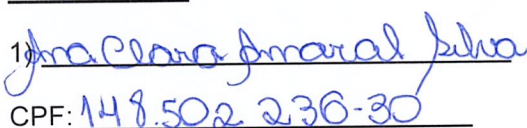 1) Ana Clara Amaral Silva
CPF: 148.502.236-30